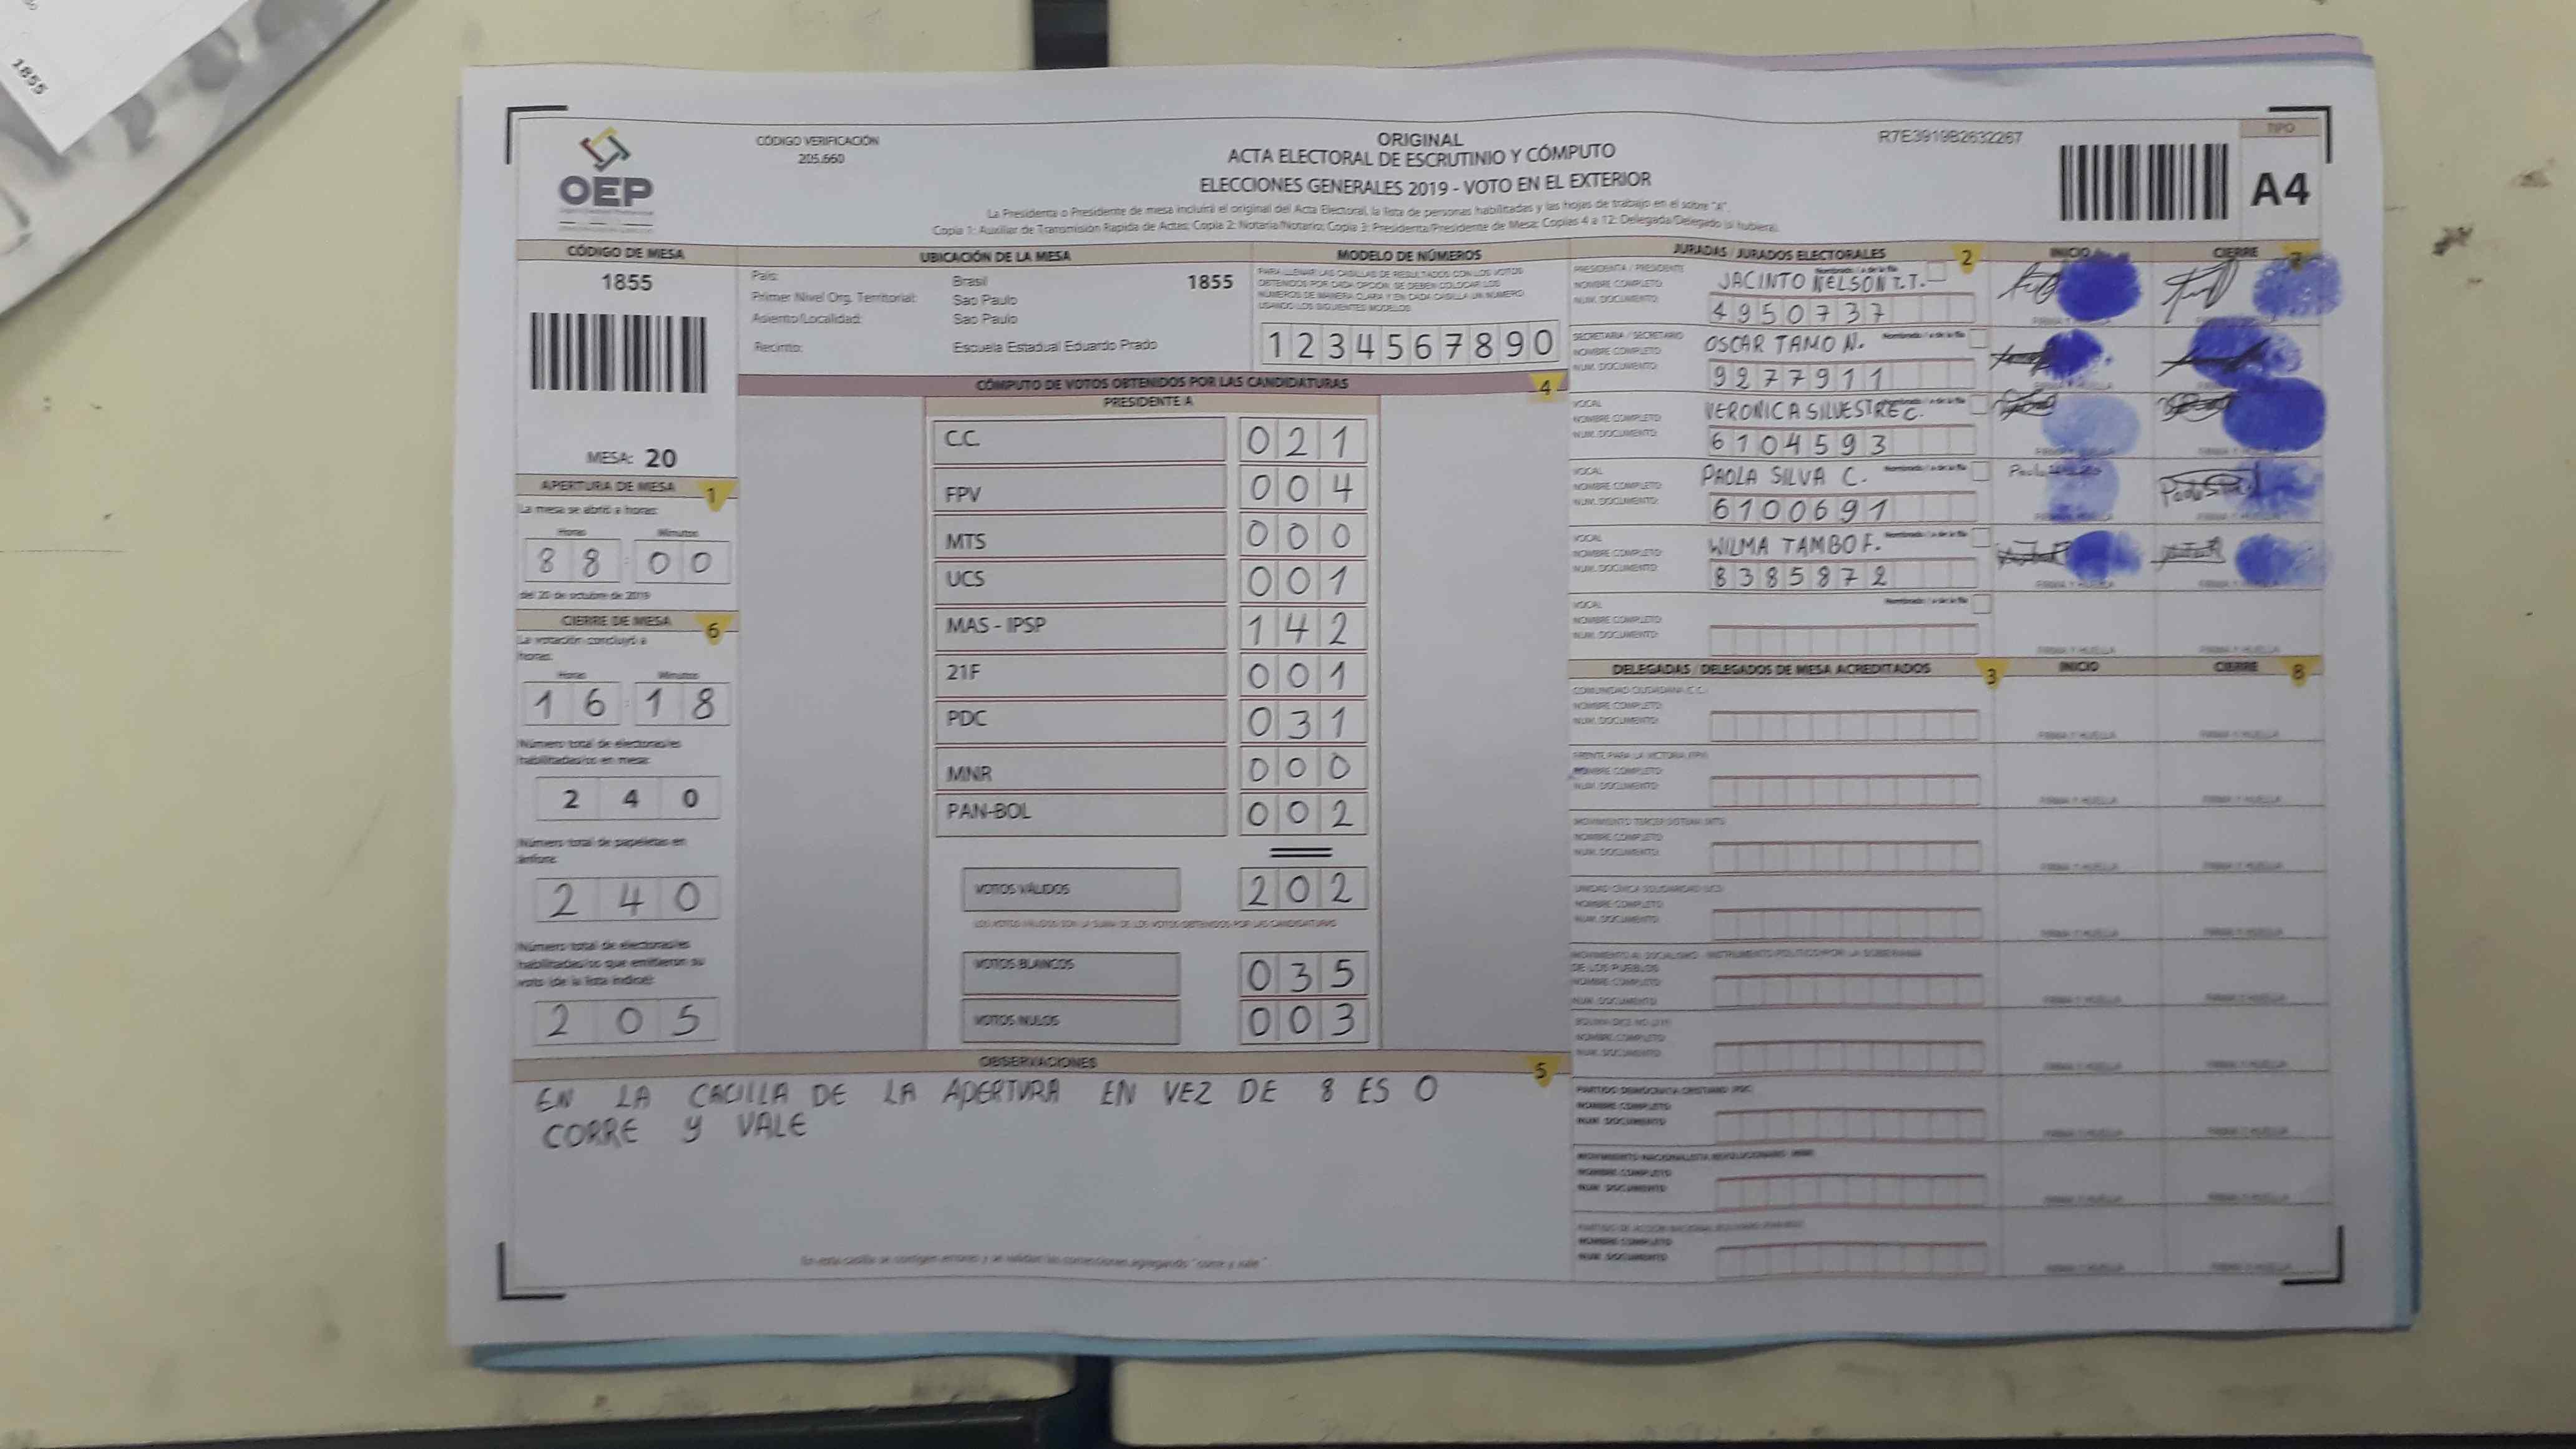 1855
OEP
CÓDIGO VERIFICACIÓN
205.660
ORIGINAL
ACTA ELECTORAL DE ESCRUTINIO Y CÓMPUTO
ELECCIONES GENERALES 2019 - VOTO EN EL EXTERIOR
La Presidenta o Presidente de mesa incluirá el original del Acta Electoral, la lista de personas habilitadas y las hojas de trabajo en el sobre "A".
Copia 1: Auxiliar de Transmisión Rápida de Actas; Copia 2: Notaria/Notario; Copia 3: Presidenta/Presidente de Mesa; Copias 4 a 12: Delegada/Delegado (si hubiera).
R7E3919B2632267
TIPO
A4
CÓDIGO DE MESA
1855
MESA: 20
APERTURA DE MESA 1
La mesa se abrió a horas:
Horas Minutos
8 8 : 0 0
del 20 de octubre de 2019
CIERRE DE MESA 6
La votación concluyó a
horas:
Horas Minutos
1 6 : 1 8
Número total de electoras/es
habilitadas/os en mesa:
2 4 0
Número total de papeletas en
ánfora:
2 4 0
Número total de electoras/es
habilitadas/os que emitieron su
voto (de la lista índice):
2 0 5
UBICACIÓN DE LA MESA
País: Brasil 1855
Primer Nivel Org. Territorial: Sao Paulo
Asiento/Localidad: Sao Paulo
Recinto: Escuela Estadual Eduardo Prado
MODELO DE NÚMEROS
PARA LLENAR LAS CASILLAS DE RESULTADOS CON LOS VOTOS
OBTENIDOS POR CADA OPCIÓN, SE DEBEN COLOCAR LOS
NÚMEROS DE MANERA CLARA Y EN CADA CASILLA UN NÚMERO
USANDO LOS SIGUIENTES MODELOS:
1 2 3 4 5 6 7 8 9 0
CÓMPUTO DE VOTOS OBTENIDOS POR LAS CANDIDATURAS 4
PRESIDENTE A
C.C. 0 2 1
FPV 0 0 4
MTS 0 0 0
UCS 0 0 1
MAS - IPSP 1 4 2
21F 0 0 1
PDC 0 3 1
MNR 0 0 0
PAN-BOL 0 0 2
VOTOS VÁLIDOS 2 0 2
LOS VOTOS VÁLIDOS SON LA SUMA DE LOS VOTOS OBTENIDOS POR LAS CANDIDATURAS
VOTOS BLANCOS 0 3 5
VOTOS NULOS 0 0 3
OBSERVACIONES 5
EN LA CACILLA DE LA APERTURA EN VEZ DE 8 ES 0
CORRE Y VALE
En esta casilla se corrigen errores y se validan las correcciones agregando "corre y vale"
JURADAS / JURADOS ELECTORALES 2 INICIO CIERRE 7
PRESIDENTA / PRESIDENTE
NOMBRE COMPLETO: JACINTO NELSON T.T.
NUM. DOCUMENTO: 4950737
SECRETARIA / SECRETARIO
NOMBRE COMPLETO: OSCAR TAMO N.
NUM. DOCUMENTO: 9277911
VOCAL
NOMBRE COMPLETO: VERONICA SILVESTRE C.
NUM. DOCUMENTO: 6104593
VOCAL
NOMBRE COMPLETO: PAOLA SILVA C.
NUM. DOCUMENTO: 6100691
VOCAL
NOMBRE COMPLETO: WILMA TAMBO F.
NUM. DOCUMENTO: 8385872
VOCAL
NOMBRE COMPLETO:
NUM. DOCUMENTO:
FIRMA Y HUELLA FIRMA Y HUELLA
DELEGADAS / DELEGADOS DE MESA ACREDITADOS 3 INICIO CIERRE 8
COMUNIDAD CIUDADANA (C.C.)
NOMBRE COMPLETO:
NUM. DOCUMENTO:
FIRMA Y HUELLA FIRMA Y HUELLA
FRENTE PARA LA VICTORIA (FPV)
NOMBRE COMPLETO:
NUM. DOCUMENTO:
FIRMA Y HUELLA FIRMA Y HUELLA
MOVIMIENTO TERCER SISTEMA (MTS)
NOMBRE COMPLETO:
NUM. DOCUMENTO:
FIRMA Y HUELLA FIRMA Y HUELLA
UNIDAD CÍVICA SOLIDARIDAD (UCS)
NOMBRE COMPLETO:
NUM. DOCUMENTO:
FIRMA Y HUELLA FIRMA Y HUELLA
MOVIMIENTO AL SOCIALISMO - INSTRUMENTO POLÍTICO POR LA SOBERANÍA
DE LOS PUEBLOS
NOMBRE COMPLETO:
NUM. DOCUMENTO:
FIRMA Y HUELLA FIRMA Y HUELLA
BOLIVIA DICE NO (21F)
NOMBRE COMPLETO:
NUM. DOCUMENTO:
FIRMA Y HUELLA FIRMA Y HUELLA
PARTIDO DEMÓCRATA CRISTIANO (PDC)
NOMBRE COMPLETO:
NUM. DOCUMENTO:
FIRMA Y HUELLA FIRMA Y HUELLA
MOVIMIENTO NACIONALISTA REVOLUCIONARIO (MNR)
NOMBRE COMPLETO:
NUM. DOCUMENTO:
FIRMA Y HUELLA FIRMA Y HUELLA
PARTIDO DE ACCIÓN NACIONAL BOLIVIANO (PAN-BOL)
NOMBRE COMPLETO:
NUM. DOCUMENTO:
FIRMA Y HUELLA FIRMA Y HUELLA